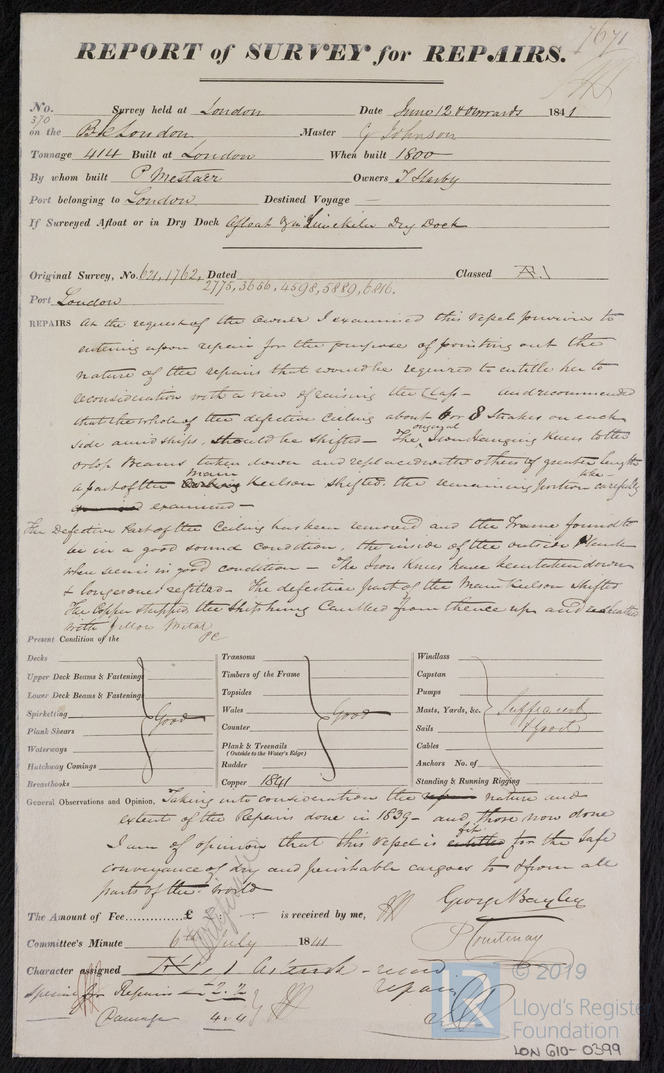 7671
REPORT of SURVEY for REPAIRS.
No. 370 Survey held at London Date June 12 & onwards 1841
on the Bk London Master G Johnson
Tonnage 414 Built at London When built 1800
By whom built P Mestaer Owners T Starby
Port belonging to London Destined Voyage —
If Surveyed Afloat or in Dry Dock Afloat & in Dry Dock
Original Survey, No. 671, 1762, Dated Classed Æ.1
2775, 3656, 4598, 5889, 6816.
Port London
REPAIRS At the request of the Owner I examined this Vessel previous to
entering upon repair for the purpose of pointing out the
nature of the repairs that would be required to entitle her to
reconsideration with a view of raising the Class – and recommended
that the whole of the defective Ceiling about 6 or 8 Strakes on each
side amidships, should be shifted – The original Iron Hanging Knees to the
orlop Beams taken down and replaced with others of greater length
a part of the Main Keelson shifted. the remaining portion carefully
examined –
The Defective Part of the Ceiling has been removed and the Frame found to
be in a good sound condition, the inside of the outside Plank
when seen is in good condition – The Iron Knees have been taken down
& longer ones refitted – The defective part of the Main Keelson shifted
The Copper stripped the Ship being Caulked from thence up and
with Yellow Metal
Present Condition of the
Decks
Upper Deck Beams & Fastenings
Lower Deck Beams & Fastenings
Spirketting Good
Plank Shears
Waterways
Hatchway Comings
Breasthooks
Transoms
Timbers of the Frame
Topsides
Wales Good
Counter
Plank & Treenails
(Outside to the Water's Edge)
Rudder
Copper 1841
Windlass
Capstan
Pumps
Masts, Yards, &c. Sufficient
Sails & Good
Cables
Anchors No. of
Standing & Running Rigging
General Observations and Opinion, Taking into consideration the nature and
extent of the Repairs done in 1839 – and those now done
I am of opinion that this Vessel is fit for the Safe
conveyance of dry and perishable cargoes to & from all
parts of the World
The Amount of Fee............ £ is received by me,
George Bayley
Committee's Minute 6th July 1841
P Courtenay
Character assigned
Special for Repairs £ 2. 2
Damage 4. 4
© 2019
Lloyd's Register
Foundation
LON 610- 0399